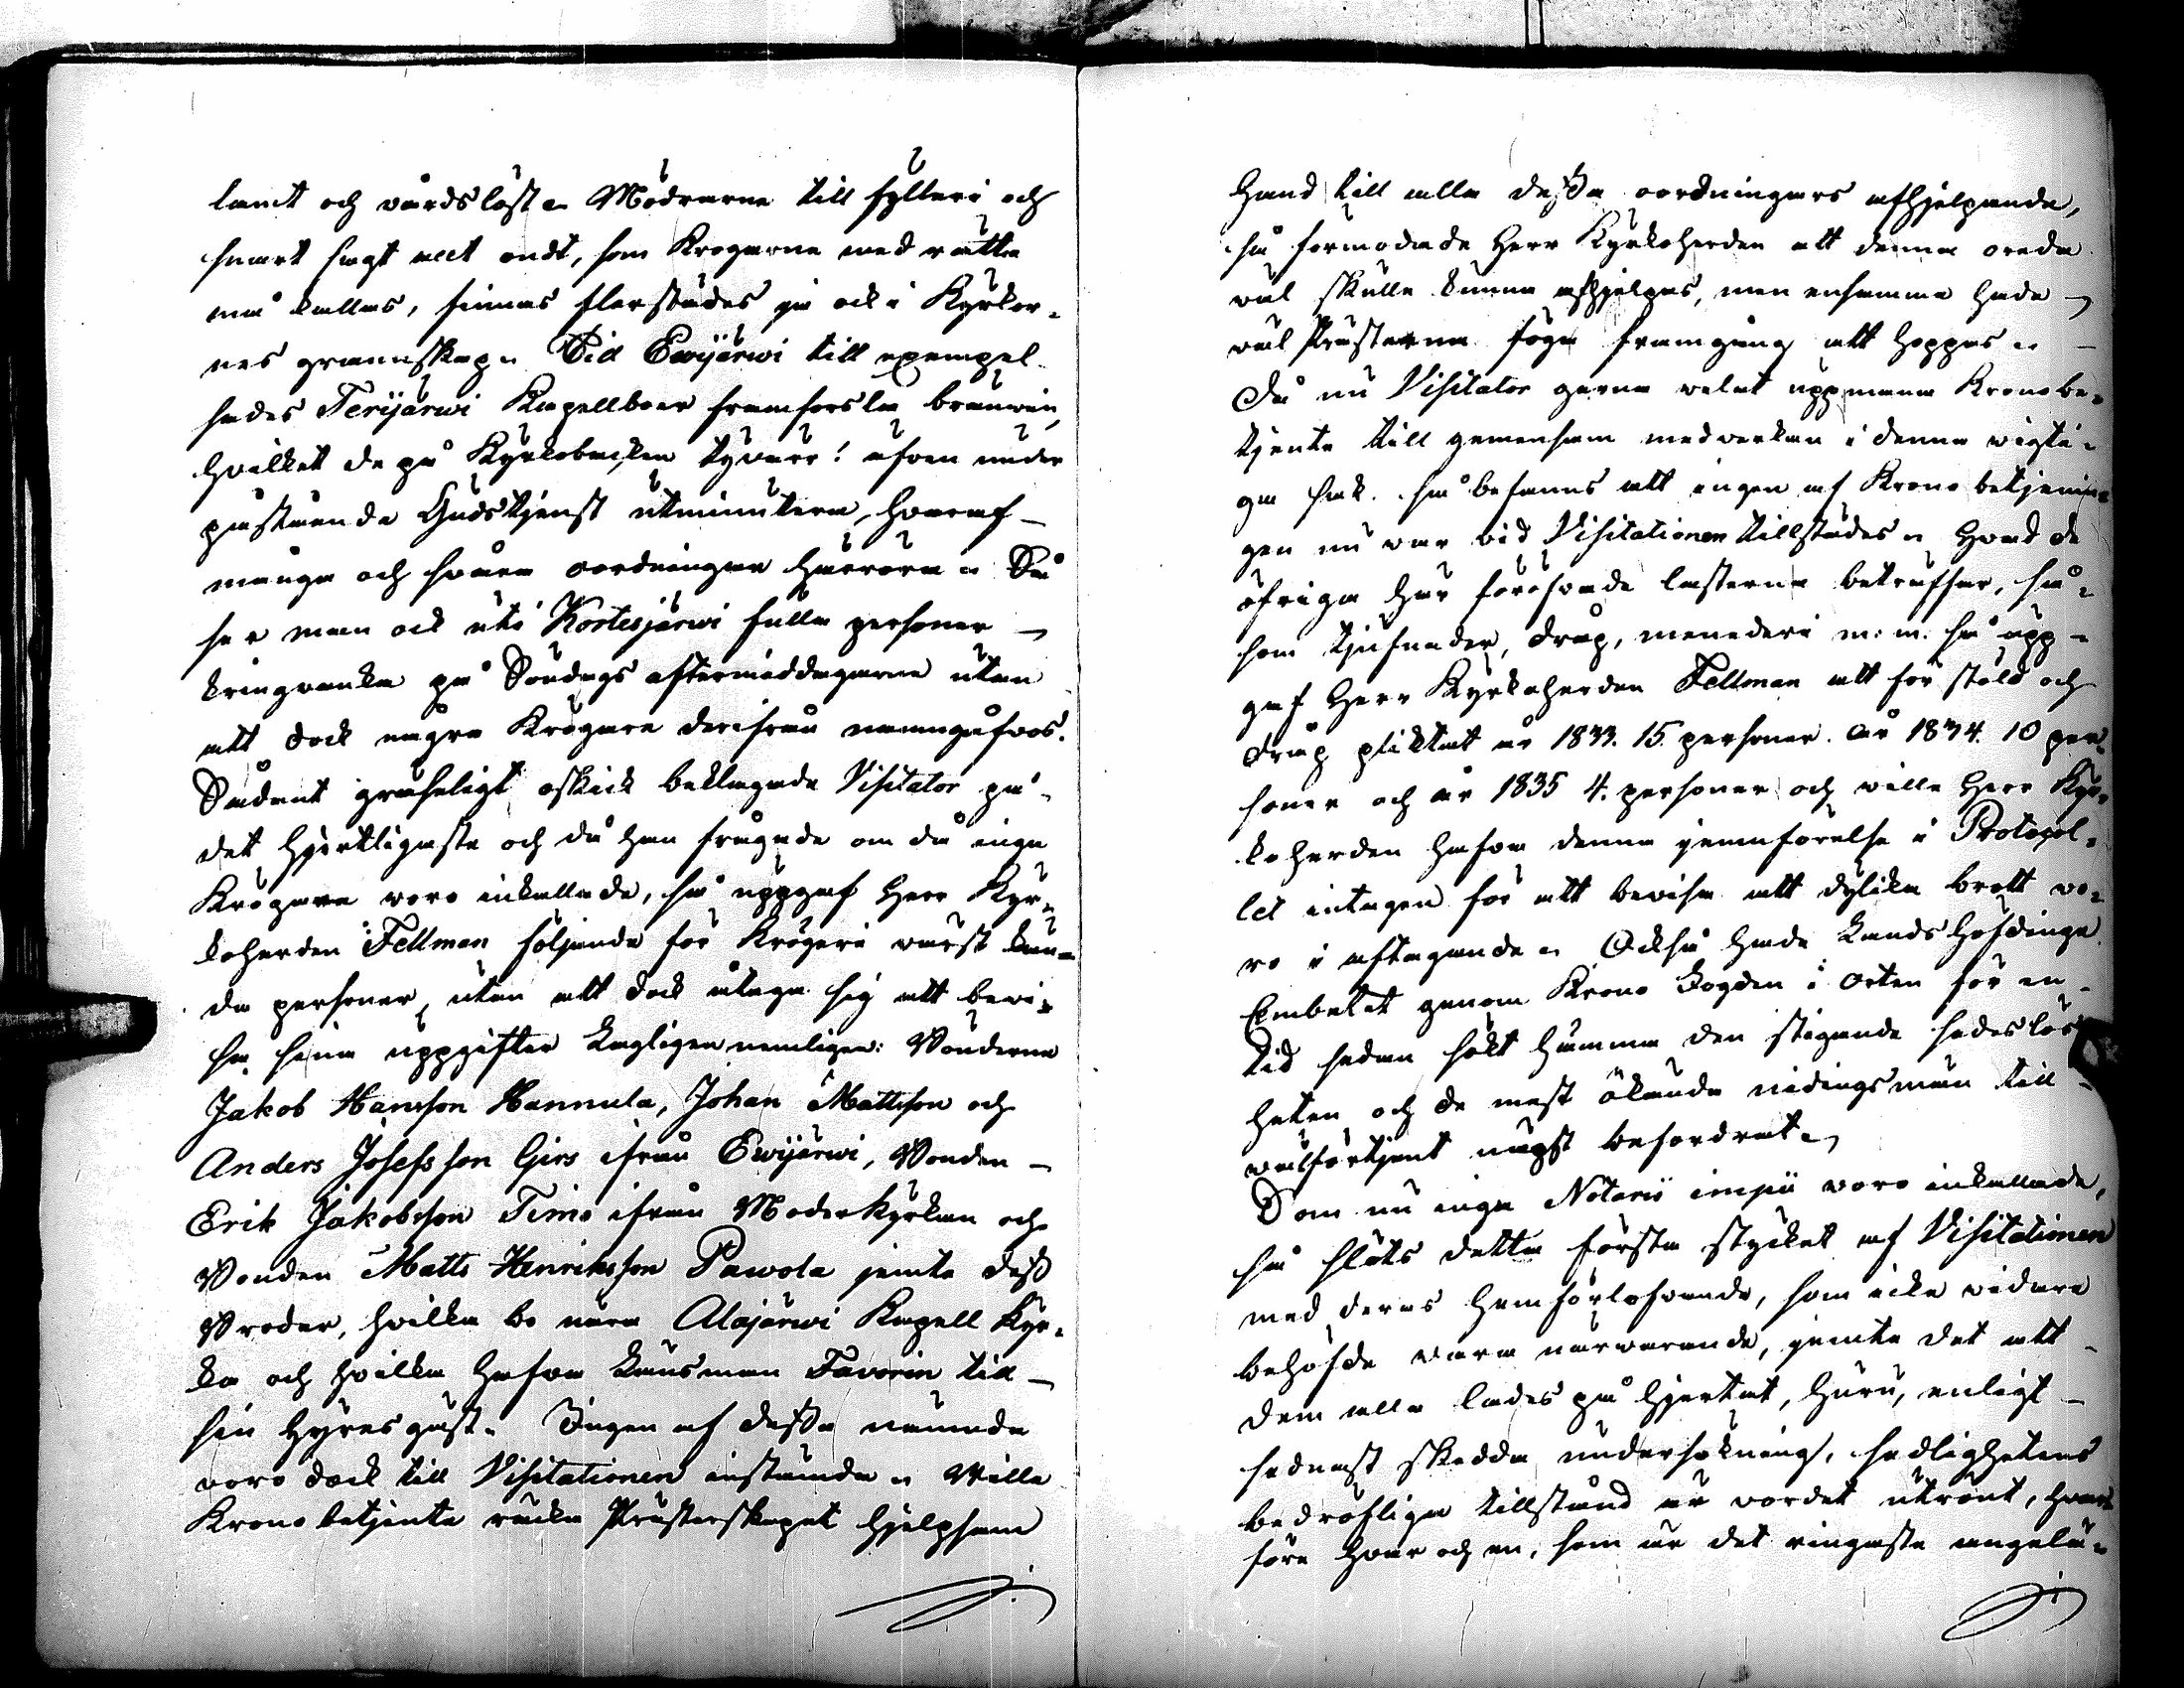 lamt och vårdslöst. Mödrarne till fylleri och
snart sagt allt ondt, som Krogarne med rätta
må kallas, finnas flerstädes ja ock i Kyrkor-
nes grannskap. Vid Ewijärwi till exempel
sades Terijärwi Kapellboer framforsla bränvin,
hvilket de på Kyrkobacken tyvärr! äfven under
påstående Gudstjenst utminutera, hvaraf
många och svåra oordningar härröra. Så
ser man ock uti Kortesjärwi fulla personer
kringvanka på Söndags eftermiddagarne utan
att dock några Krögare derifrån namngåfvos.
Sådant gräseligt oskick beklagade Visitator på
det hjertligaste och då han frågade om då inga
Krögare voro inkallade, så uppgaf Herr Kyr-
koherden Fellman följande för Krögeri värst kän-
da personer, utan att dock åtaga sig att bevi-
sa sina uppgifter lagligen nemligen: Bönderna
Jakob Hansson Hannula, Johan Mattsson och
Anders Josefsson Girs ifrån Ewijärwi, Bonden
Erik Jakobsson Timo ifrån Moderkyrkan och
Bonden Matts Henriksson Pawola jemte dess
Broder, hvilka bo nära Alajärwi Kapell Kyr-
ka och hvilka hafva Länsman Favorin till
sin hyresgäst. Ingen af dessa nämnda
voro dock till Visitationen instämda. Ville
Krono betjente räcka Presterskapet hjelpsam
Hand till alla dessa oordningars afhjelpande,
så förmodade Herr Kyrkoherden att denna oreda
väl skulle kunna afhjelpas, men ensamme hade
väl Presterna föga framgång att hoppas.
Då nu Visitator gerna velat uppmana Kronobe-
tjente till gemensam medverkan i denna vigti-
ga sak, så befanns att ingen af Krono betjenin-
gen nu var vid Visitationen tillstädes. Hvad de
öfriga här föröfvade lasterna beträffar, så-
som tjufnader, dråp, menederi m. m. så upp-
gaf Herr Kyrkoherden Fellman att för stöld och
dråp pliktat år 1833. 15. personer. år 1834. 10 per-
soner och år 1835 4. personer och ville Herr Kyr-
koherden hafva denna jemnförelse i Protocol-
let intagen för att bevisa att dylika brott vo-
ro i aftagande. Också hade Landshöfdinge
Embetet genom Krono Fogden i Orten för en
tid sedan sökt hämma den stigande sedeslös-
heten och de mest ökända nidingsmän till
välförtjent näpst befordrat.
Som nu inga Notorii impii voro inkallade,
så slöts detta första stycket af Visitationen
med deras hemförlofvande, som icke vidare
behöfde vara närvarande, jemte det att
dem alla lades på hjertat, huru, enligt
sednast skedda undersökning, sedlighetens
bedröfliga tillstånd är vordet utrönt, hvar-
före hvar och en, som är det ringaste angelä-